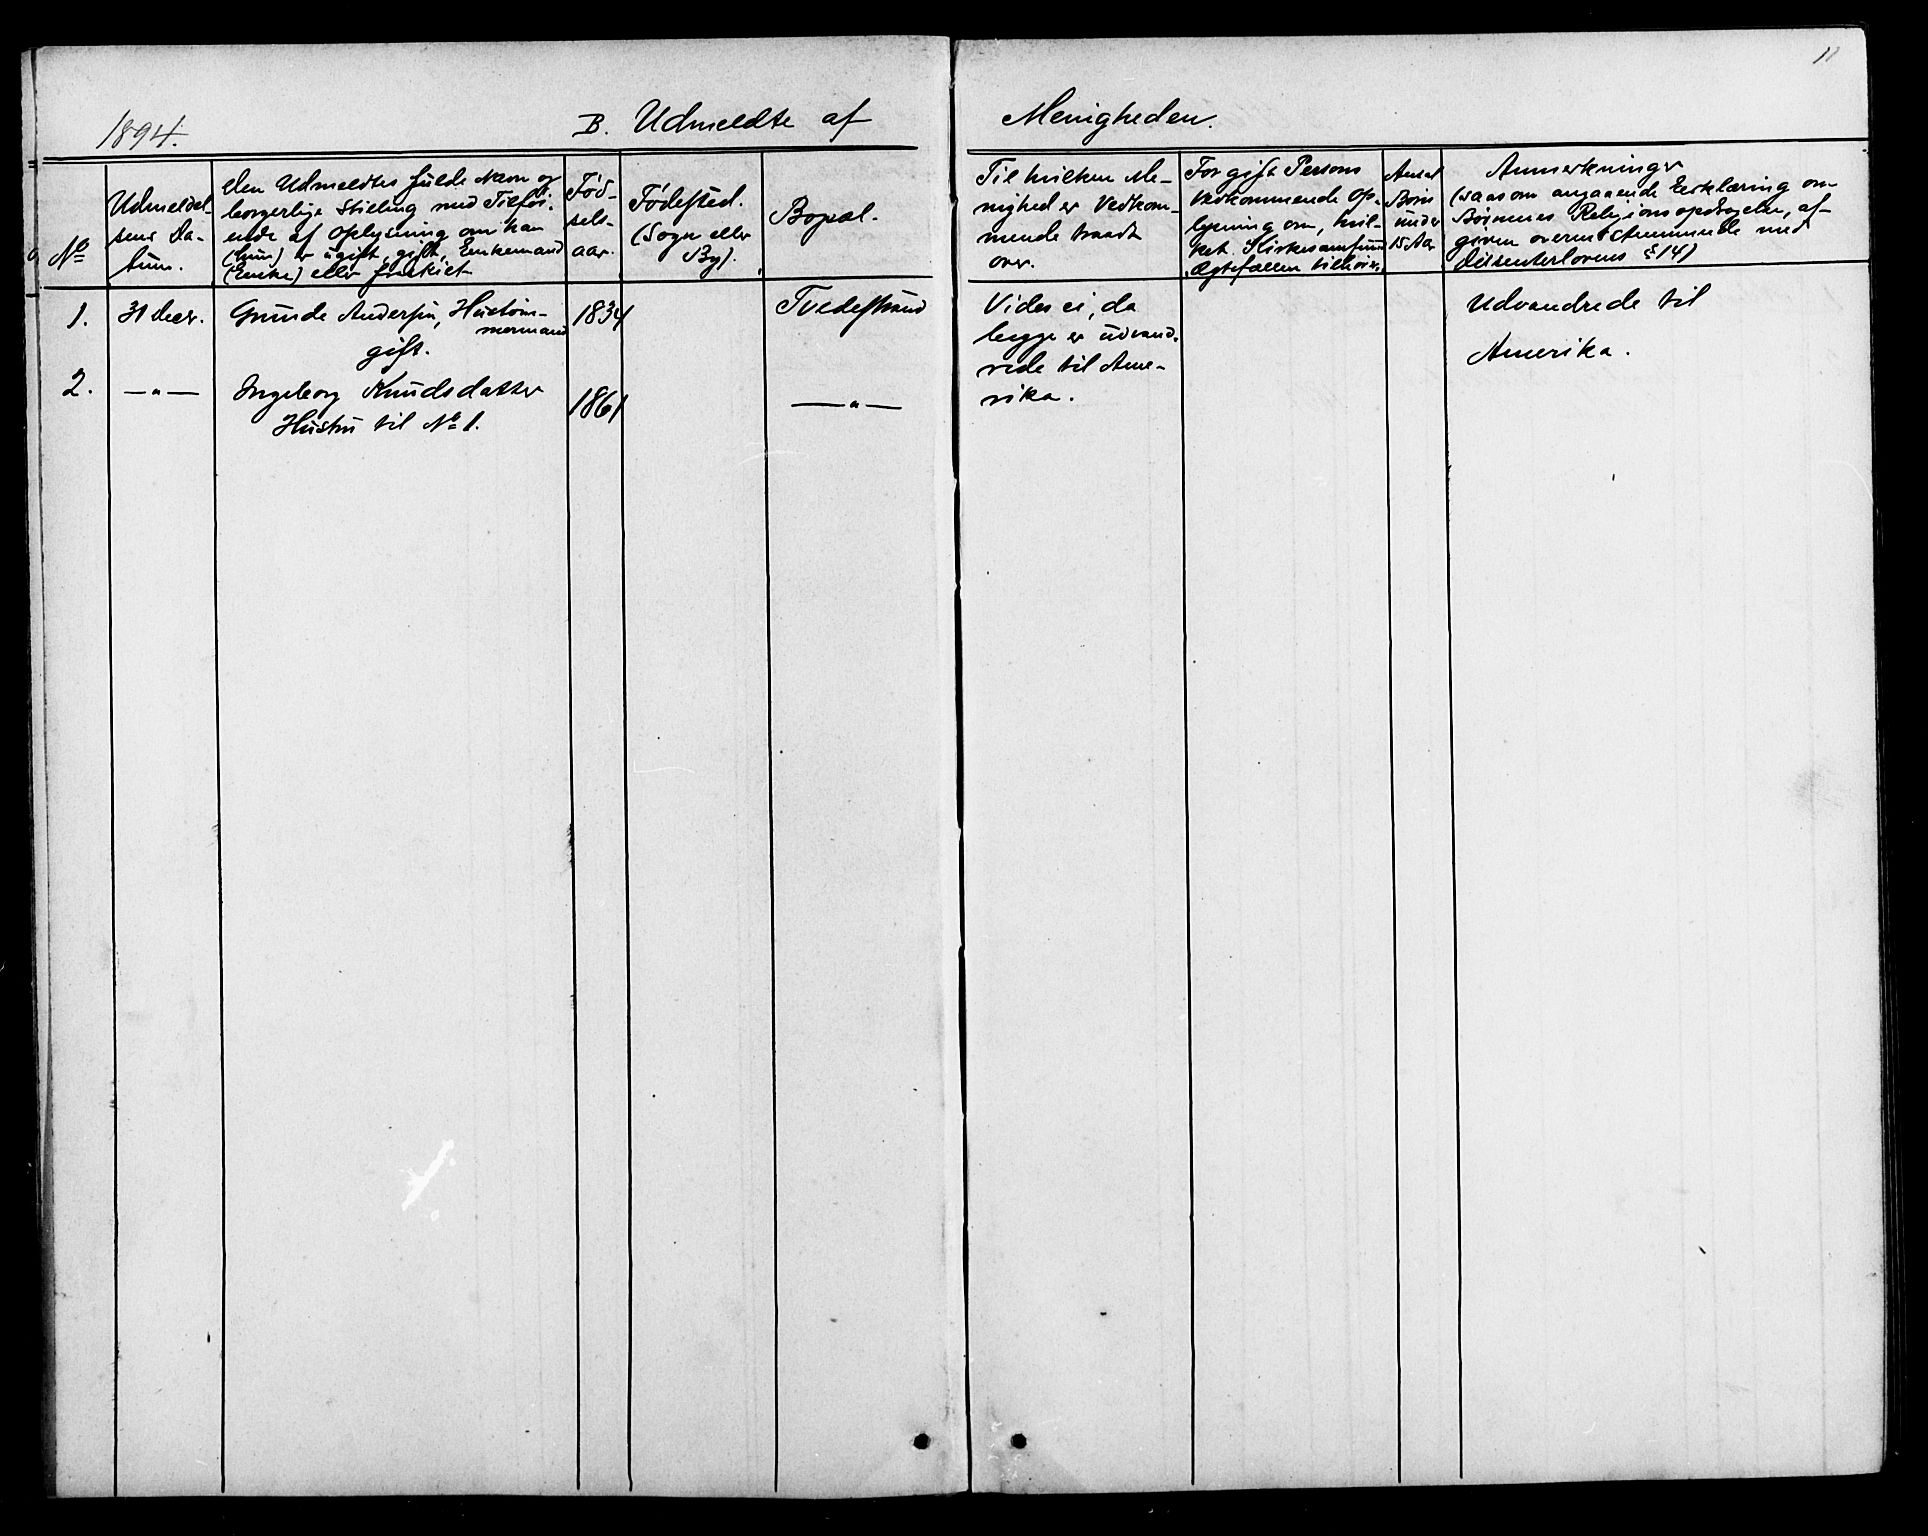 11
1894.
B. Udmeldte af Menigheden.
No
Udmeldel-
sens Da-
tum.
Den Udmeldtes fulde Navn og
borgerlige Stilling med Tilföi-
ende af Oplysning om han
(hun) er ugift, gift, Enkemand
(Enke) eller fraskilt
Fød-
sels-
aar.
Fødested.
(Sogn eller
By).
Bopæl.
Til hvilken Me-
nighed er Vedkom-
mende traadt
over.
For gift Persons
Vedkommende Op-
lysning om, hvil-
ket Kirkesamfund
Ægtefællen tilhører.
Antal
Børn
under
15 Aar
Anmerkninger
(saasom angaaende Erklæring om
Børnenes Religionsopdragelse, af-
given overensstemmende med
Dissenterlovens § 14)
1. 31 decr. Gunde Andersen, Hustöm-
mermand
gift.
1834
Tvedestrand
Vides ei, da
begge er udvand-
rede til Ame-
rika.
Udvandrede til
Amerika.
2. —„— Ingeborg Knudsdatter
Hustru til No 1.
1861
—„—